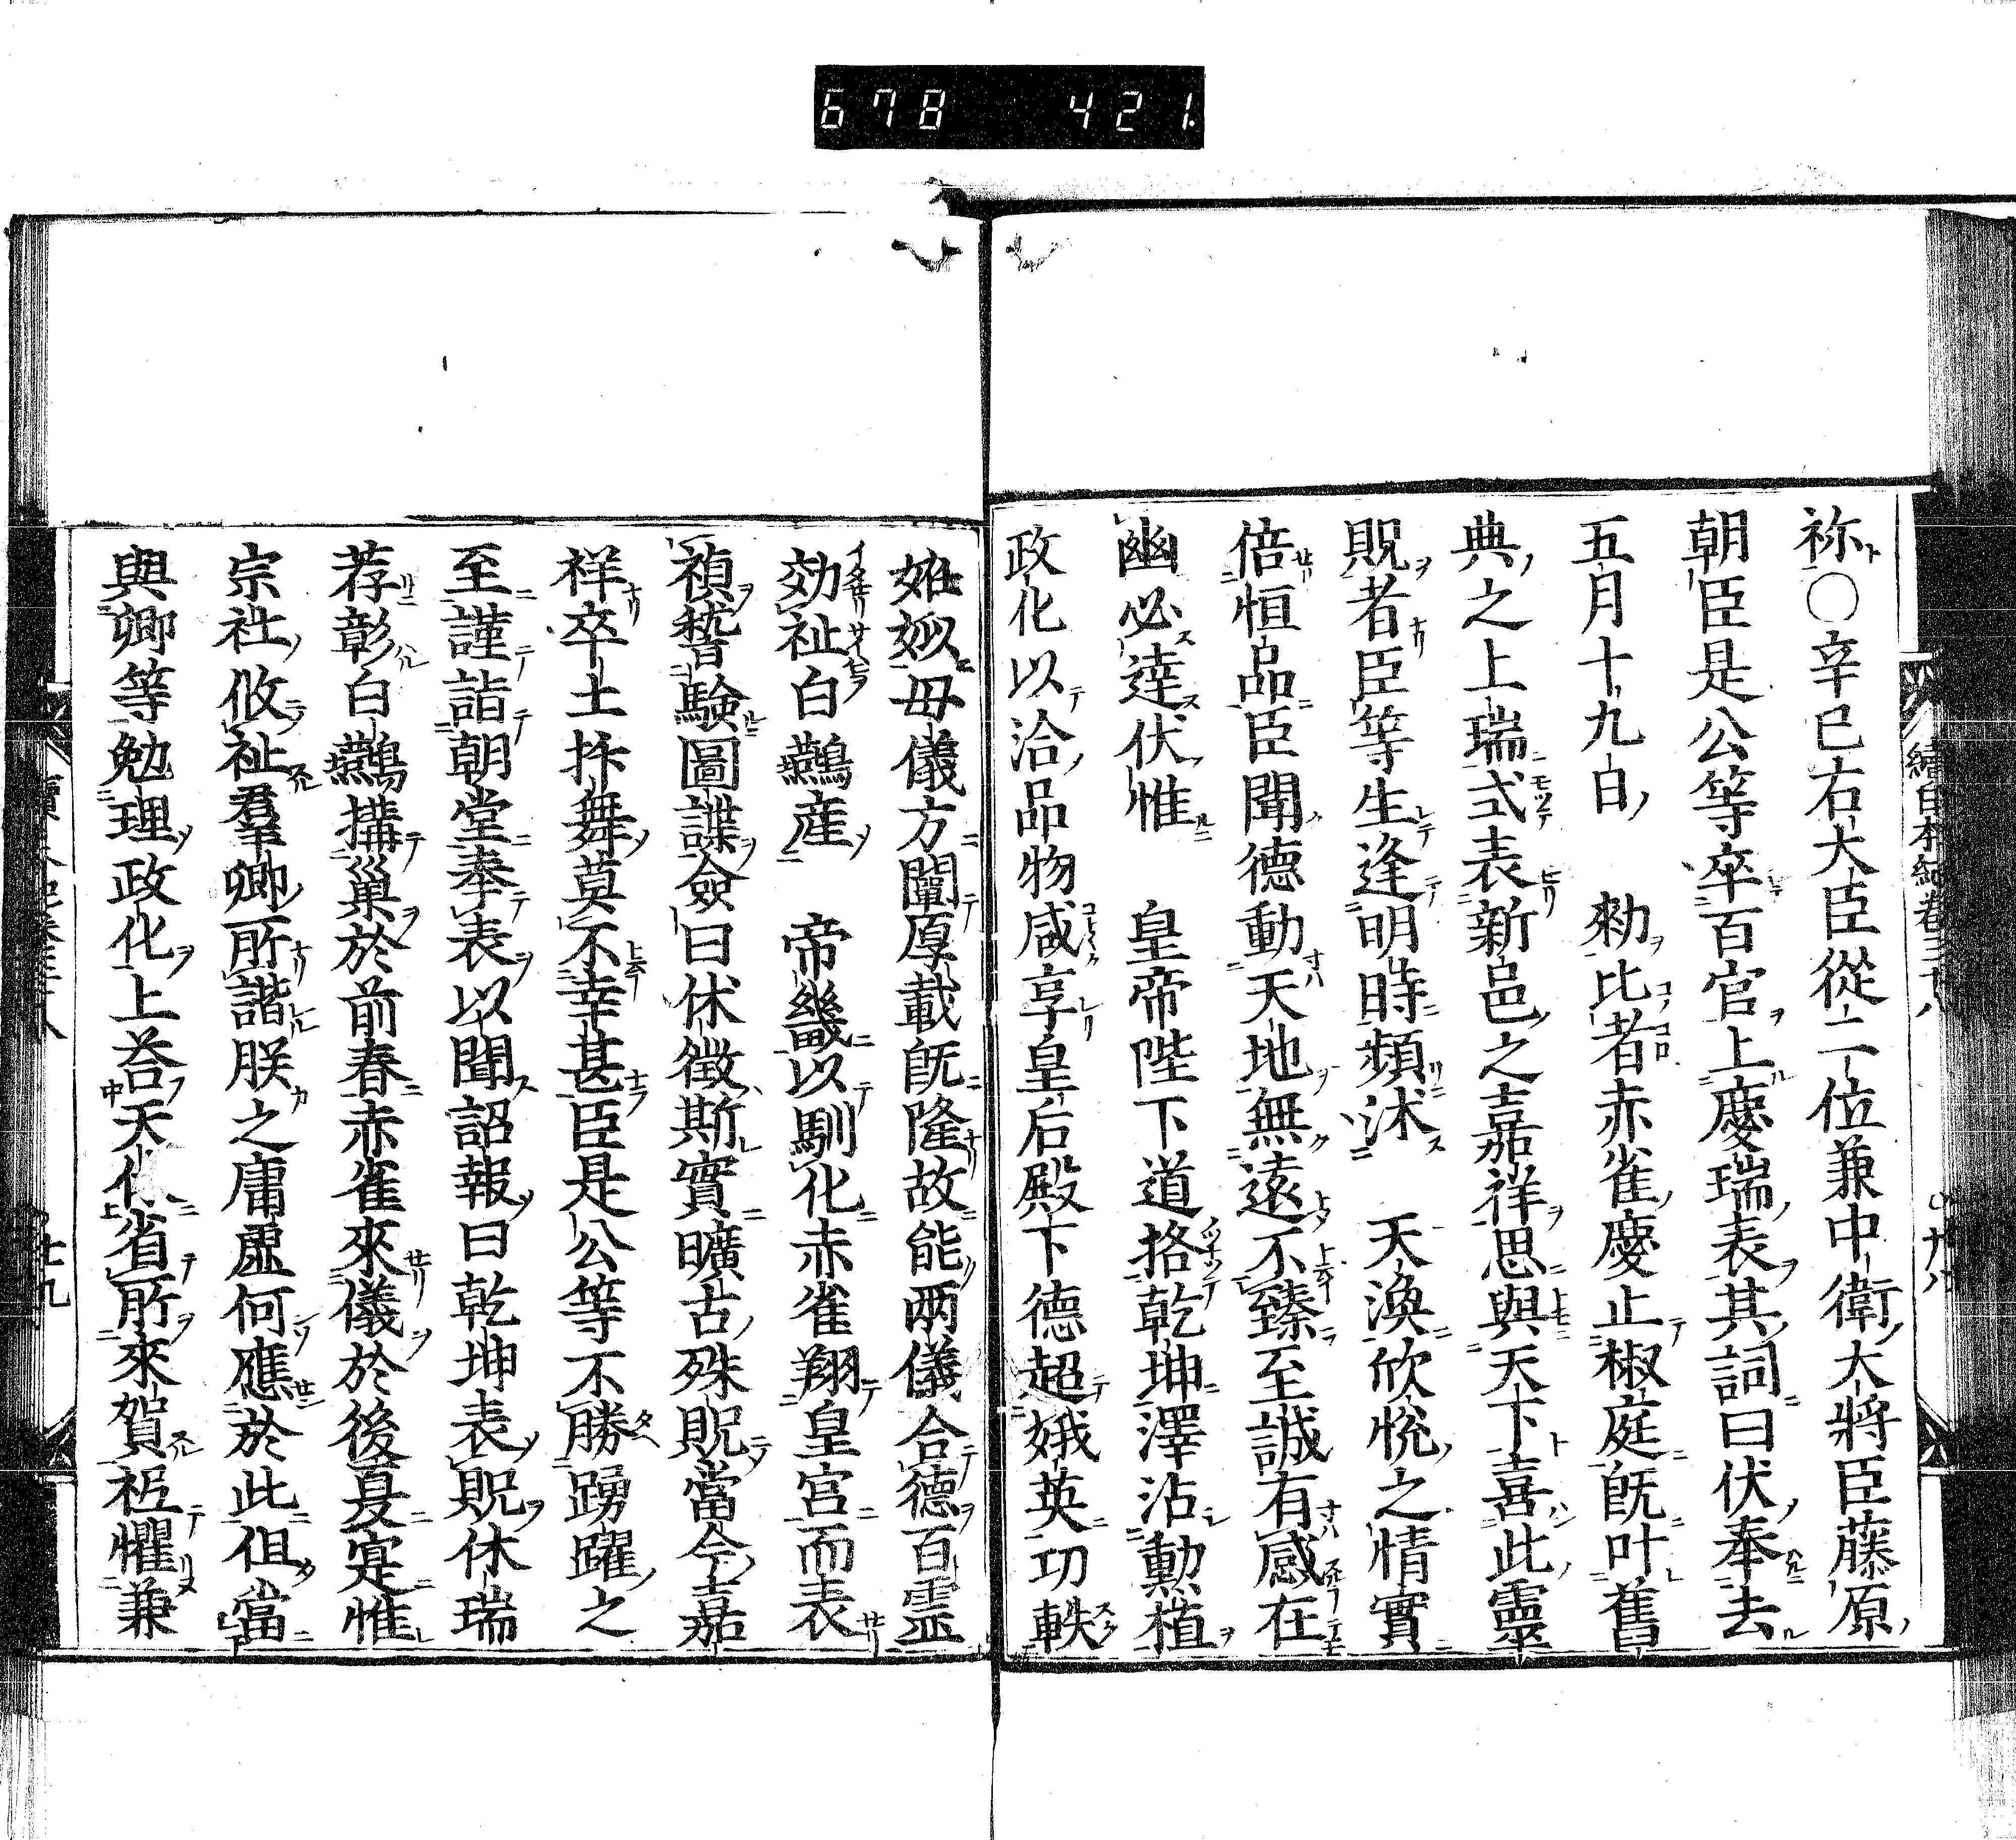 678 421
祢○辛巳右大臣從二位兼中衛大將臣藤原
朝臣是公等率百官上慶瑞表其詞曰伏奉去
五月十九日 勅比者赤雀慶止椒庭既叶舊
典之上瑞式表新邑之嘉祥思與天下喜此靈
貺者臣等生逢明時頻沐 天渙欣悅之情實
倍恒品臣聞德動天地無遠不臻至誠有感在
幽必達伏惟 皇帝陛下道格乾坤澤沾動植
政化以洽品物咸享皇后殿下德超娥英功軼
姙姒母儀方闡厚載既隆故能兩儀合德百霊
効祉白鷰産 帝畿以馴化赤雀翔皇宮而表
禎瞽驗圖諜僉曰休徵斯實曠古殊貺當今嘉
祥率土抃舞莫不幸甚臣是公等不勝踴躍之
至謹詣朝堂奉表以聞詔報曰乾坤表貺休瑞
荐彰白鷰搆巢於前春赤雀來儀於後夏寔惟
宗社攸祉羣卿所諧朕之庸虛何應於此但當
與卿等勉理政化上荅天休省所來賀祗懼兼
續日本紀卷三十八